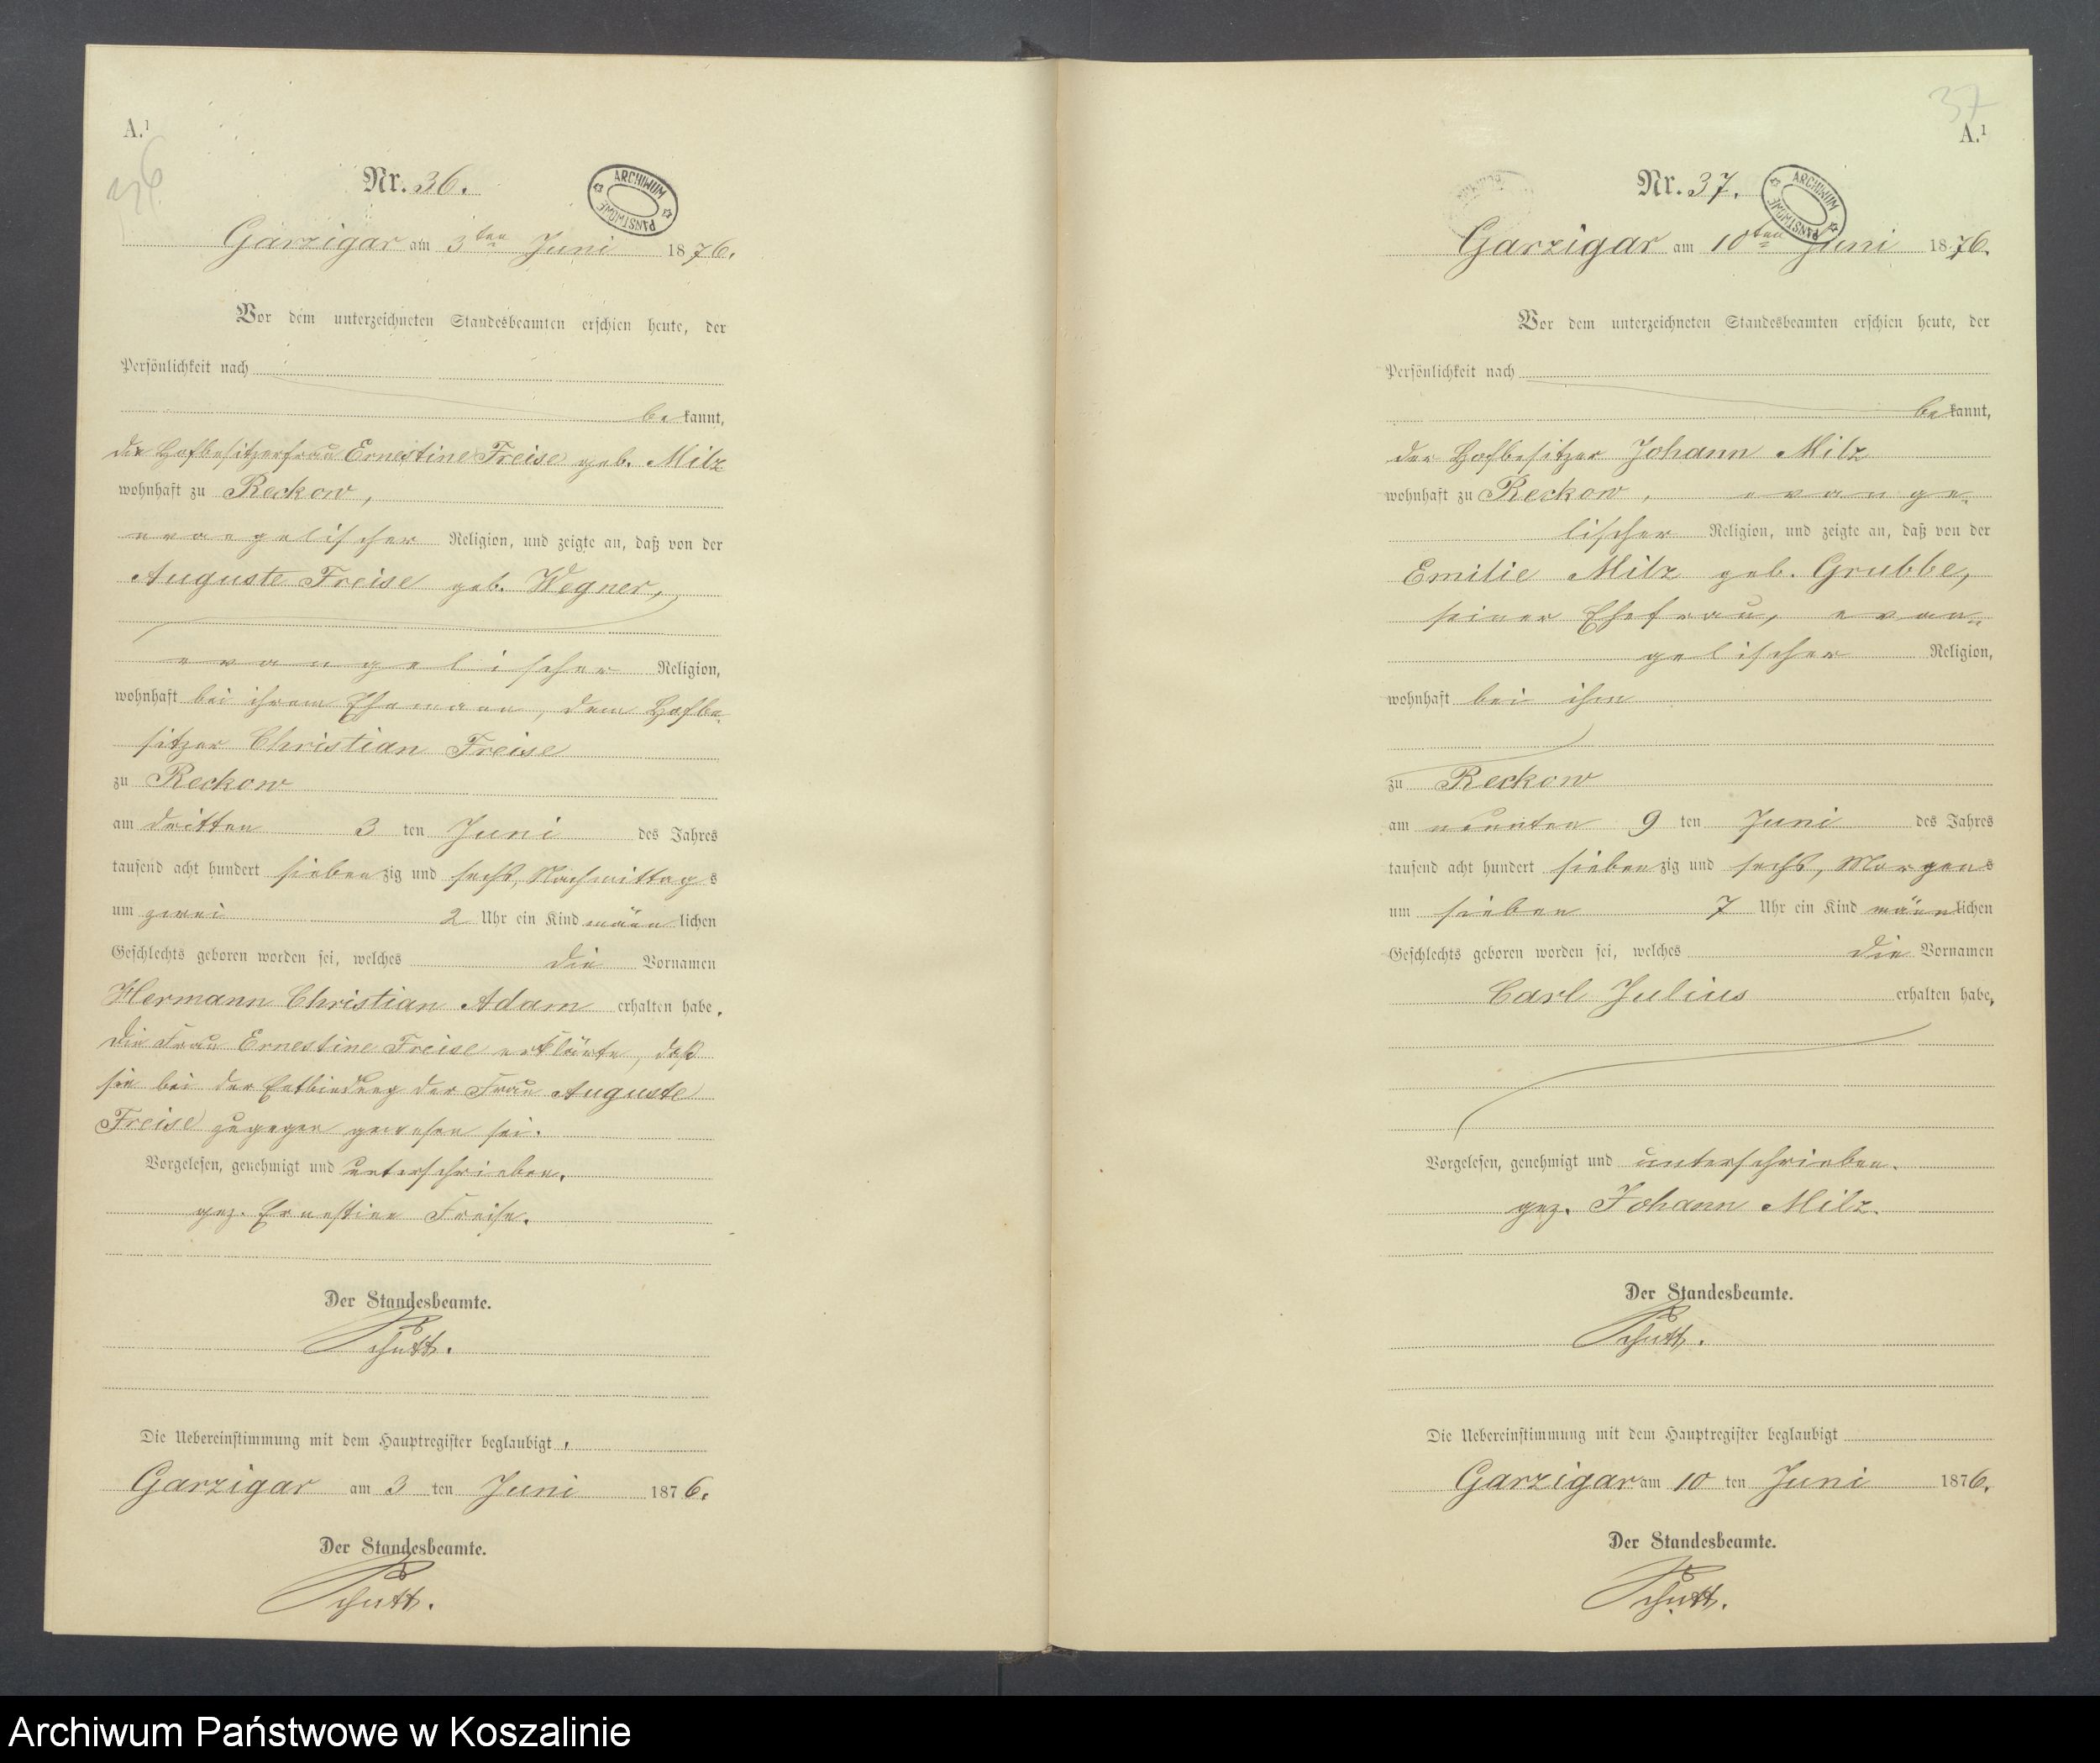 A.¹
36
Nr. 36.
ARCHIWUM PAŃSTWOWE
Garzigar am 3ten Juni 1876.
Vor dem unterzeichneten Standesbeamten erschien heute, der
Persönlichkeit nach
bekannt,
die Hofbesitzerfrau Ernestine Freise geb. Milz
wohnhaft zu Reckow,
evangelischer Religion, und zeigte an, daß von der
Auguste Freise geb. Wegner,
evangelischer Religion,
wohnhaft bei ihrem Ehemann, dem Hofbe-
sitzer Christian Freise
zu Reckow
am dritten 3 ten Juni des Jahres
tausend acht hundert siebenzig und sechs, Nachmittags
um zwei 2 Uhr ein Kind männlichen
Geschlechts geboren worden sei, welches die Vornamen
Hermann Christian Adam erhalten habe.
Die Frau Ernestine Freise erklärte, daß
sie bei der Entbindung der Frau Auguste
Freise zugegen gewesen sei.
Vorgelesen, genehmigt und unterschrieben.
gez. Ernestine Freise.
Der Standesbeamte.
Schütt.
Die Uebereinstimmung mit dem Hauptregister beglaubigt.
Garzigar am 3 ten Juni 1876.
Der Standesbeamte.
Schütt.
37
A.¹
Nr. 37.
ARCHIWUM PAŃSTWOWE
Garzigar am 10ten Juni 1876.
Vor dem unterzeichneten Standesbeamten erschien heute, der
Persönlichkeit nach
bekannt,
der Hofbesitzer Johann Milz
wohnhaft zu Reckow, evange-
lischer Religion, und zeigte an, daß von der
Emilie Milz geb. Grubbe,
seiner Ehefrau, evan-
gelischer Religion,
wohnhaft bei ihm
zu Reckow
am neunten 9 ten Juni des Jahres
tausend acht hundert siebenzig und sechs, Morgens
um sieben 7 Uhr ein Kind männlichen
Geschlechts geboren worden sei, welches die Vornamen
Carl Julius erhalten habe,
Vorgelesen, genehmigt und unterschrieben.
gez. Johann Milz.
Der Standesbeamte.
Schütt.
Die Uebereinstimmung mit dem Hauptregister beglaubigt
Garzigar am 10 ten Juni 1876.
Der Standesbeamte.
Schütt.
Archiwum Państwowe w Koszalinie